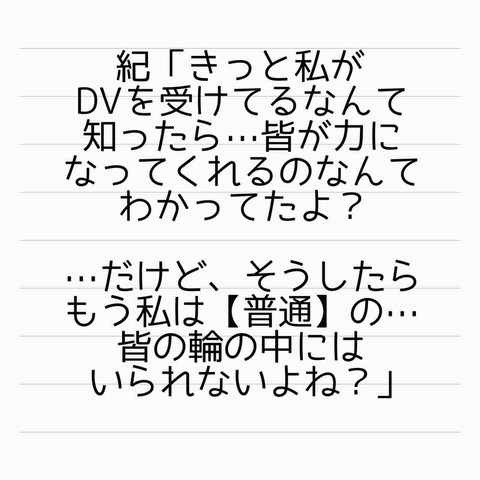 紀「きっと私が
DVを受けてるなんて
知ったら…皆が力に
なってくれるのなんて
わかってたよ？
…だけど、そうしたら
もう私は【普通】の…
皆の輪の中には
いられないよね？」